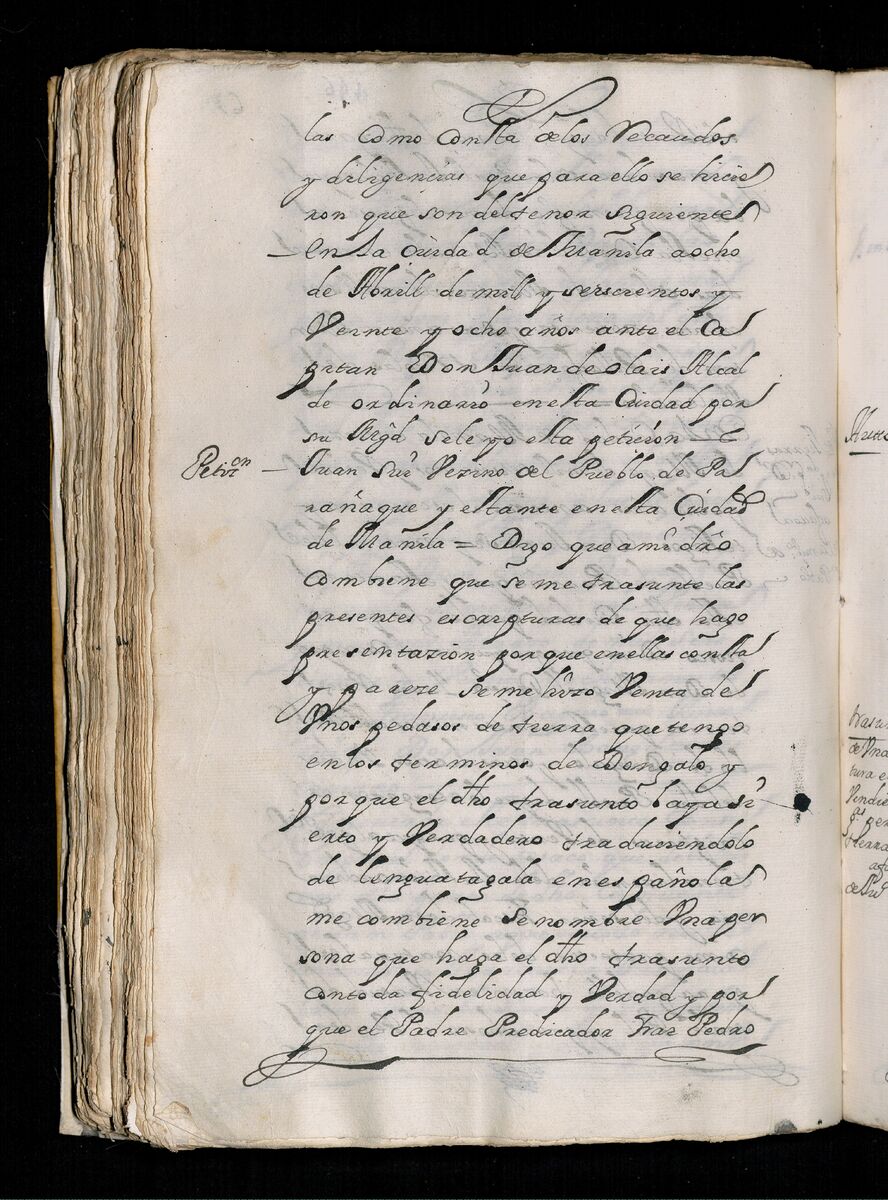 las como consta de los Recaudos
y diligencias que para ello se hicie
ron que son del tenor siguiente
En La Ciudad de Manila a ocho
de Abrill de mill y seiscientos y
Veinte y ocho años ante el Ca
pitan Don Juan de olais Alcal
de ordinario en esta Ciudad por
su Mgd se leyo esta peticion
Petizon
Juan Vezino del Pueblo de Pa
rañaque y estante en esta Ciudad
de Manila = Digo que a mi dro
combiene que se me trasunte las
presentes escripturas de que hago
presentazion porque en ellas consta
y pareze se me hizo Venta de
Vnos pedasos de tierra que tengo
en los terminos de Dongalo y
porque el dho trasunto baya si
erto y Verdadero traduciendolo
de lengua tagala en española
me combiene se nombre Vna per
sona que haga el dho trasunto
con toda fidelidad y Verdad y por
que el Padre Predicador Frai Pedro